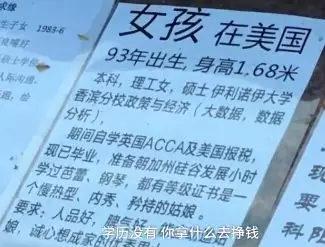 求缘
生子女 1983-6
良嘴好
硕士学位
人际沟通
女孩 在美国
93年出生,身高1.68米
本科,理工女,硕士伊利诺伊大学
香滨分校政策与经济(大数据,数据
分析),
期间自学英国ACCA及美国报税,
现已毕业,准备朝加州硅谷发展小时
学过芭蕾、钢琴,都有等级证书是一
个慢热型、内秀、矜持的姑娘。
要求:人品好,脾气好
娘、诚心想成家的
学历没有 你拿什么去挣钱